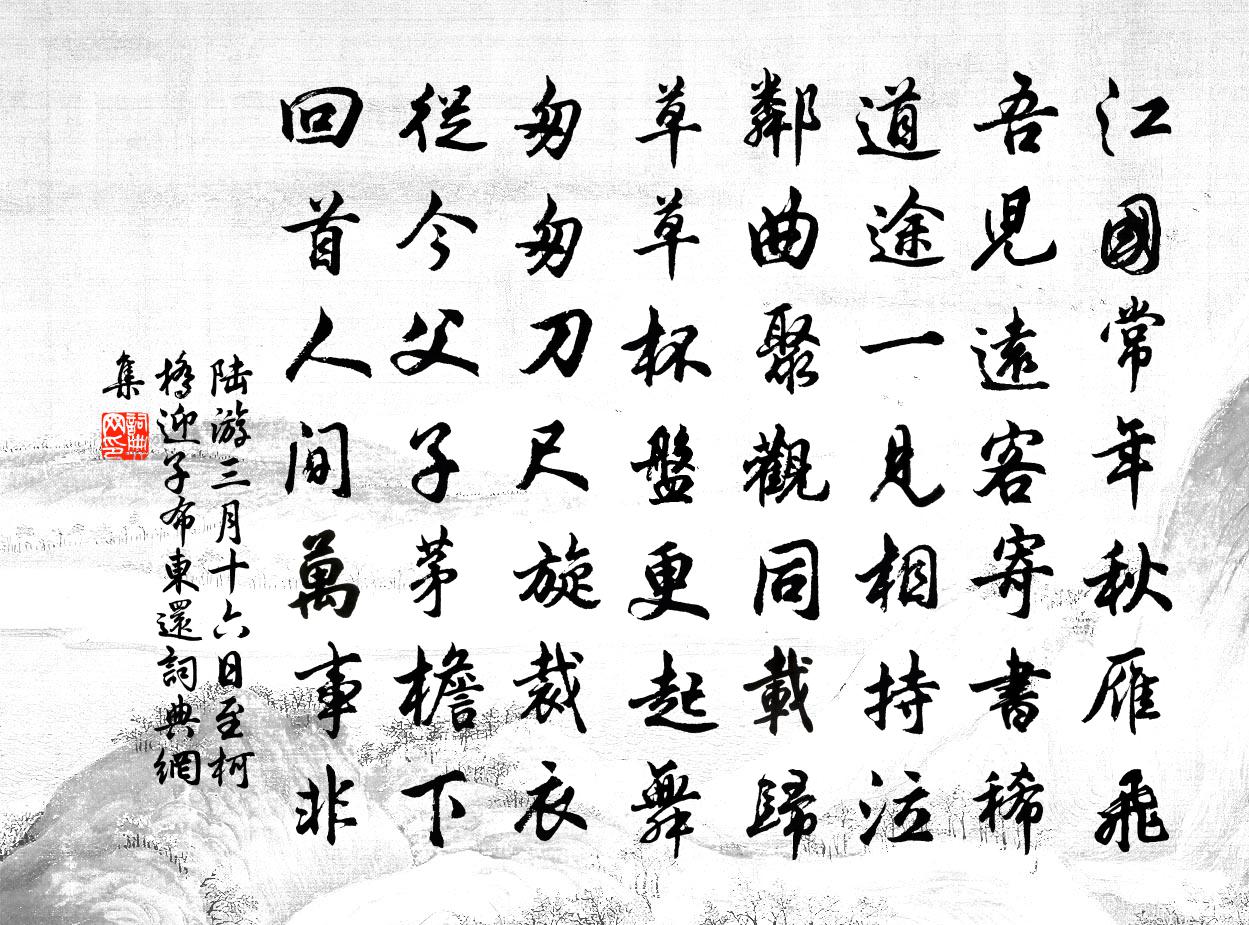 江國常年秋雁飛
吾児遠客寄書稀
道途一見相持泣
鄰曲聚觀同載歸
草草杯盤更起舞
匆匆刀尺旋裁衣
從今父子茅檐下
回首人間萬事非
陆游三月十六日至柯
橋迎子布東還詞典網
集
詞典
网印